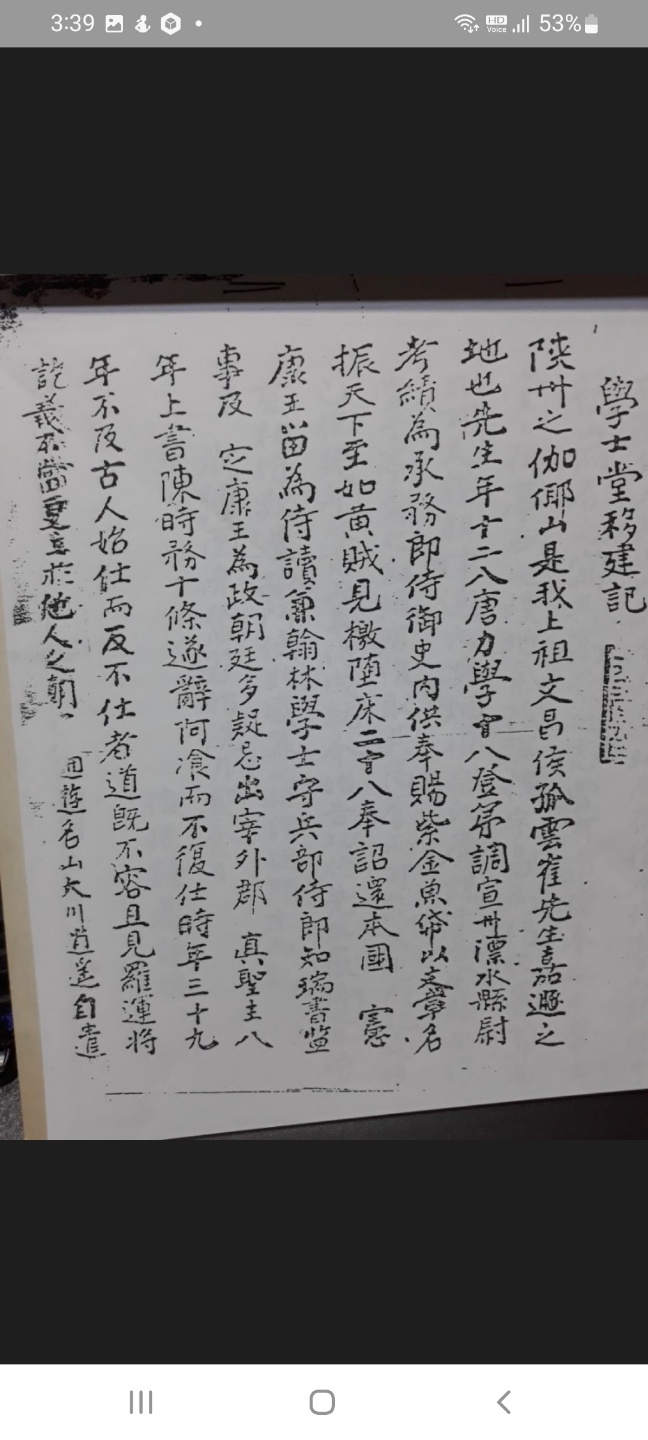 3:39
HD Voice
53%
學士堂移建記
陜州之伽倻山是我上祖文昌侯孤雲崔先生嘉遯之
地也先生年十二入唐力學十八登第調宣州漂水縣尉
考績為承務郎侍御史內供奉賜紫金魚袋以文章名
振天下至如黃賊見檄墮床二十八奉詔還本國 憲
康王留為侍讀兼翰林學士守兵部侍郎知瑞書監
事及 定康王為政朝廷多疑忌出宰外郡 真聖主八
年上書陳時務十條遂辭阿飡而不復仕時年三十九
年不及古人始仕而反不仕者道旣不容且見羅運將
訖義不當更立於他人之朝 逍遙自遣